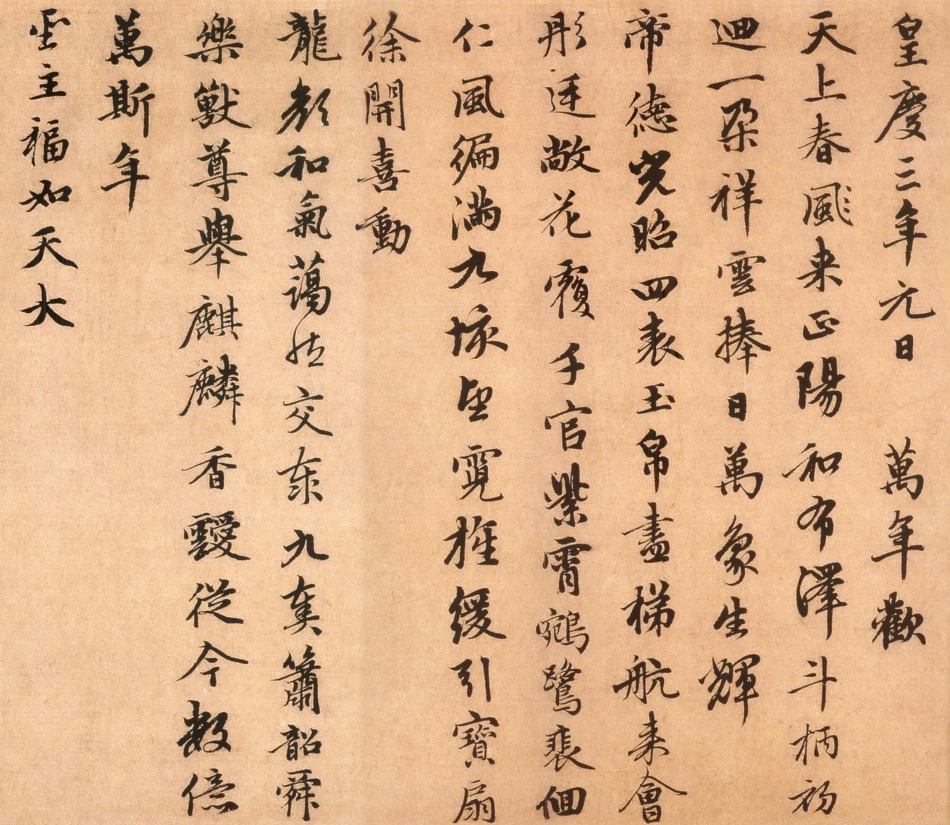 皇慶三年元日 萬年歡
天上春風来正陽和布澤斗柄初
廻一朶祥雲捧日萬象生輝
帝德光昭四表玉帛盡梯航来會
彤廷敞花覆千官紫霄鵷鷺裴佪
仁風徧滿九垓望霓旌緩引寶扇
徐開喜動
龍顔和氣藹然交泰九奏簫韶舜
樂獸尊舉麒麟香靉從今數億
萬斯年
聖主福如天大